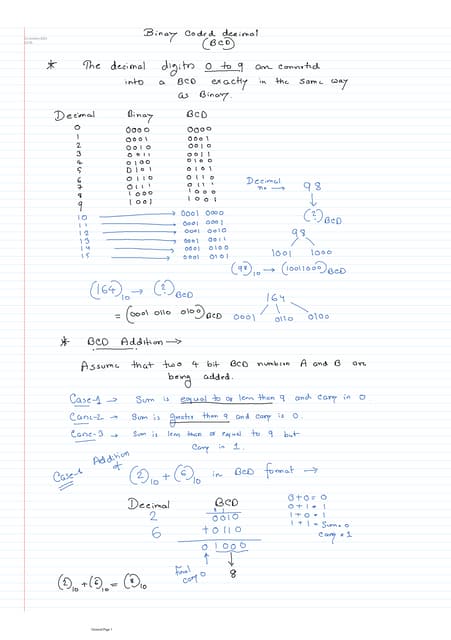 Binary Coded decimal
(BCD)
* The decimal digits 0 to 9 are converted
into a BCD exactly in the same way
as Binary.
Decimal Binary BCD
0 0000 0000
1 0001 0001
2 0010 0010
3 0011 0011
4 0100 0100
5 0101 0101
6 0110 0110
7 0111 0111
8 1000 1000
9 1001 1001
10 → 0001 0000
11 → 0001 0001
12 → 0001 0010
13 → 0001 0011
14 → 0001 0100
15 → 0001 0101
Decimal no → 98
↓
(?)BCD
98
1001 1000
(98)10 → (10011000)BCD
(164)10 → (?)BCD
= (0001 0110 0100)BCD
164
0001 0110 0100
* BCD Addition →
Assume that two 4 bit BCD numbers A and B are
being added.
Case-1 → Sum is equal to or less than 9 and carry is 0
Case-2 → Sum is greater than 9 and carry is 0.
Case-3 → Sum is less than or equal to 9 but
Carry is 1.
Case-1 Addition of (2)10 + (6)10 in BCD format →
Decimal BCD
2 0010
6 +0110
0 1000
Final carry 0
8
0+0=0
0+1=1
1+0=1
1+1=Sum=0
Carry=1
(2)10 + (6)10 = (8)10